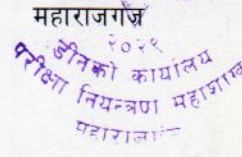 महाराजगंज
२०२९
डीनको कार्यालय
परीक्षा नियन्त्रण महाशाखा
महाराजगंज